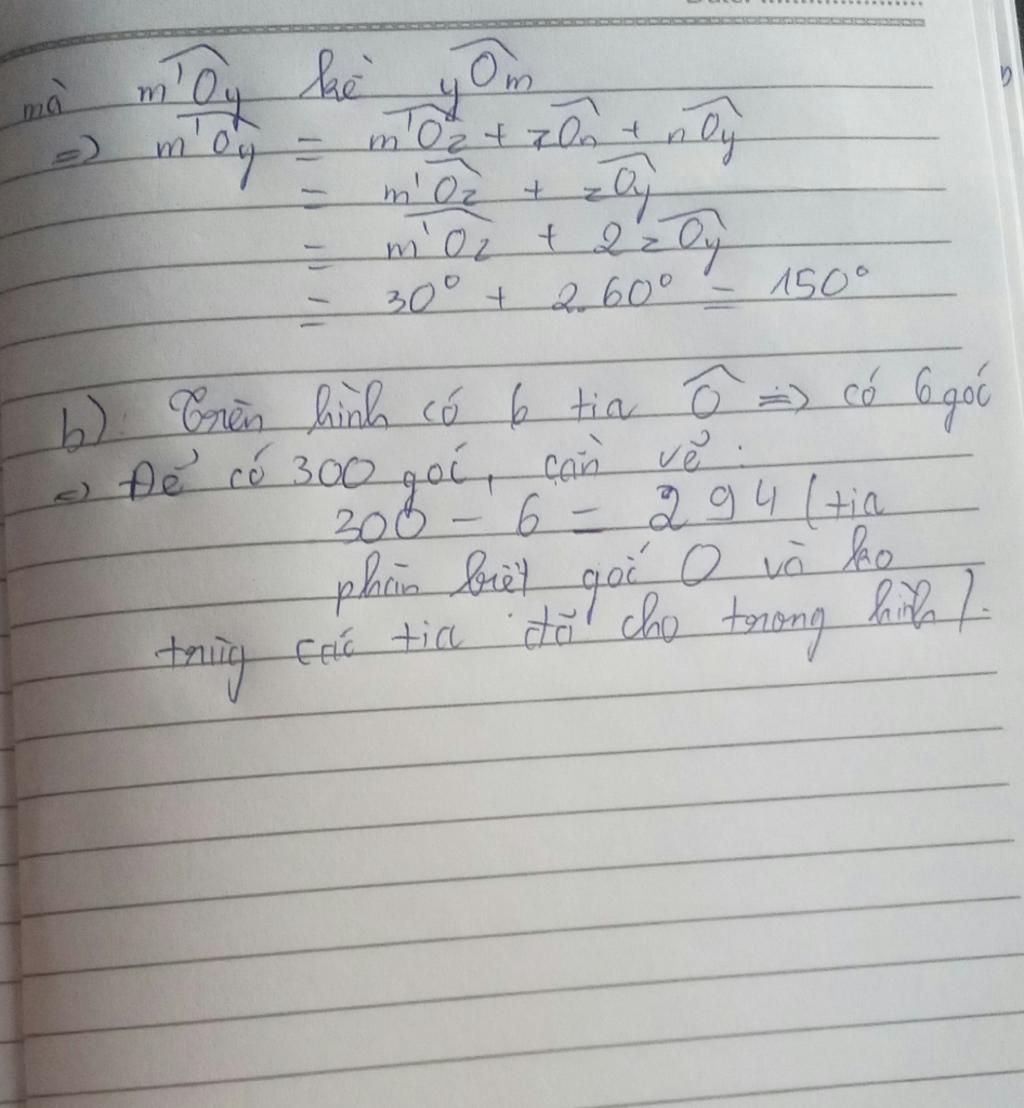 mà m'Oy kề yOm
=> m'Oy = m'Oz + zOn + nOy
= m'Oz + zOy
= m'Oz + 2zOy
= 30° + 2.60° = 150°
b) Trên hình có 6 tia O => có 6 góc
=> Để có 300 góc, cần vẽ:
300 - 6 = 294 (tia
phân biệt gốc O và ko
trùng các tia đã cho trong hình).